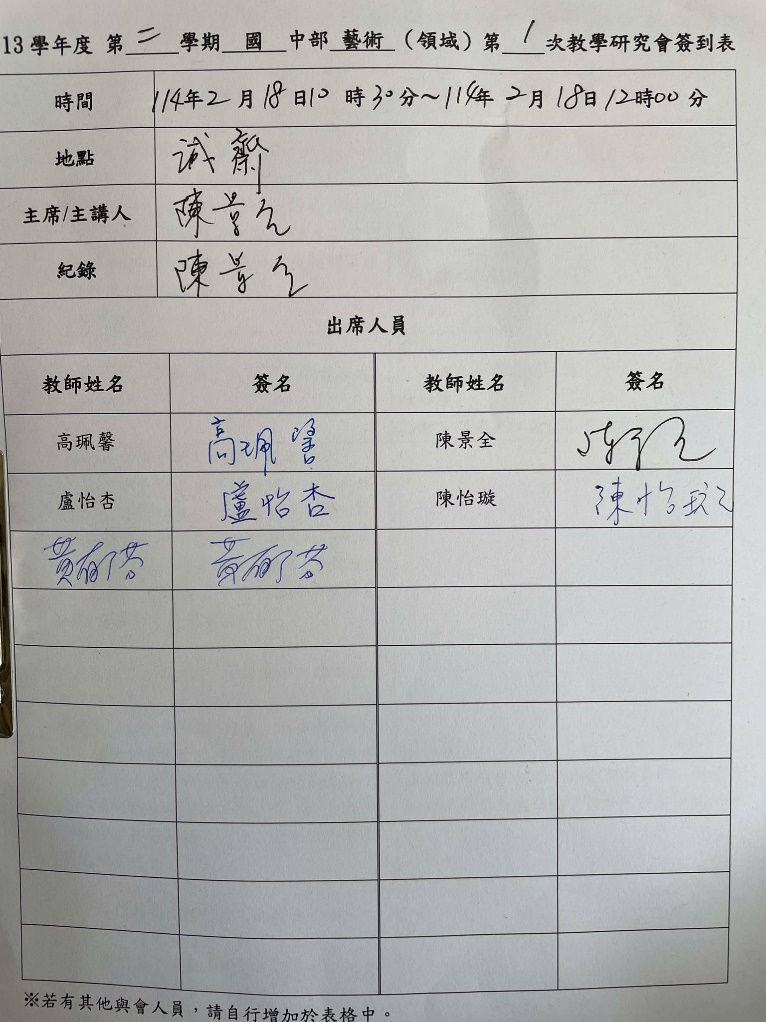 13學年度 第二學期 國 中部 藝術 (領域) 第 1 次教學研究會簽到表
時間 114年2月18日10時30分~114年2月18日12時00分
地點 誠齋
主席/主講人 陳景全
紀錄 陳景全
出席人員
教師姓名 簽名 教師姓名 簽名
高珮馨 高珮馨 陳景全 陳景全
盧怡杏 盧怡杏 陳怡璇 陳怡璇
黃郁芬 黃郁芬
※若有其他與會人員,請自行增加於表格中。